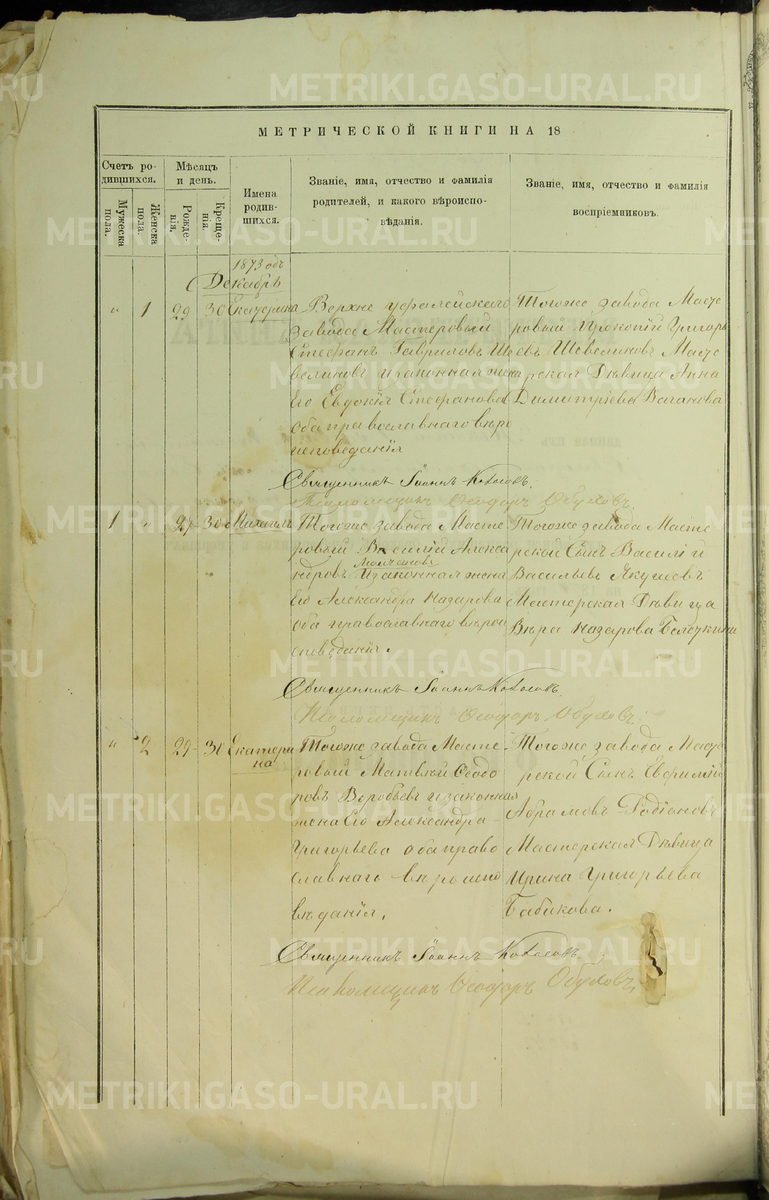 МЕТРИЧЕСКОЙ КНИГИ НА 18
Счетъ ро-
дившихся.
Мужеска
пола.
Женска
пола.
Мѣсяцъ
и день.
Рожде-
нія.
Креще-
нія.
Имена
родив-
шихся.
Званіе, имя, отчество и фамилія
родителей, и какого вѣроиспо-
вѣданія.
Званіе, имя, отчество и фамилія
воспріемниковъ.
1873
Декабрѣ
" 1 29 30 Екатерина
Верхне уфалейскаго
завода Мастеровый
Стефанъ Гавриловъ Ше
велиновъ и законная жена
Его Евдокія Стефанова
Оба православнаго вѣро
исповеданія
Тогоже завода Масте
ровый Григорь
евъ Шевелиновъ Масте
рская Дѣвица Анна
Димитріева Ваганова
Священникъ Іоаннъ
Псаломщикъ Феодоръ Обуховъ.
1 " 27 30 Михаилъ
Тогоже завода Масте
ровый Василій Алекса
ндровъ Молчановъ
И законная жена
Его Александра Назарова
Оба православнаго вѣрои
споведанія.
Тогоже завода Масте
рской Сынъ Василій
Васильевъ Якушевъ
Мастерская Дѣвица
Вѣра Назарова
Священникъ Іоаннъ
Псаломщикъ Феодоръ Обуховъ.
" 2 29 31 Екатери
на
Тогоже завода Масте
ровый Матвѣй Феодо
ровъ Воробьевъ и законная
жена Его Александра
Григорьева оба право
славнаго вѣроиспо
вѣданія.
Тогоже завода Масте
рской Сынъ
Абрамовъ Радіоновъ
Мастерская Дѣвица
Ирина Григорьева
Бабикова.
Священникъ Іоаннъ
Псаломщикъ Феодоръ Обуховъ.
METRIKI.GASO-URAL.RU